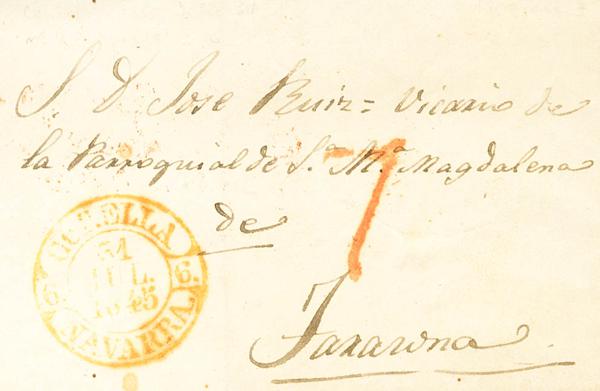 S. D. Jose Ruiz = Vicario de
la Parroquial de S.ª M.ª Magdalena
de
Tarazona
7
CORELLA
31
JUL.
1845
NAVARRA
6 6